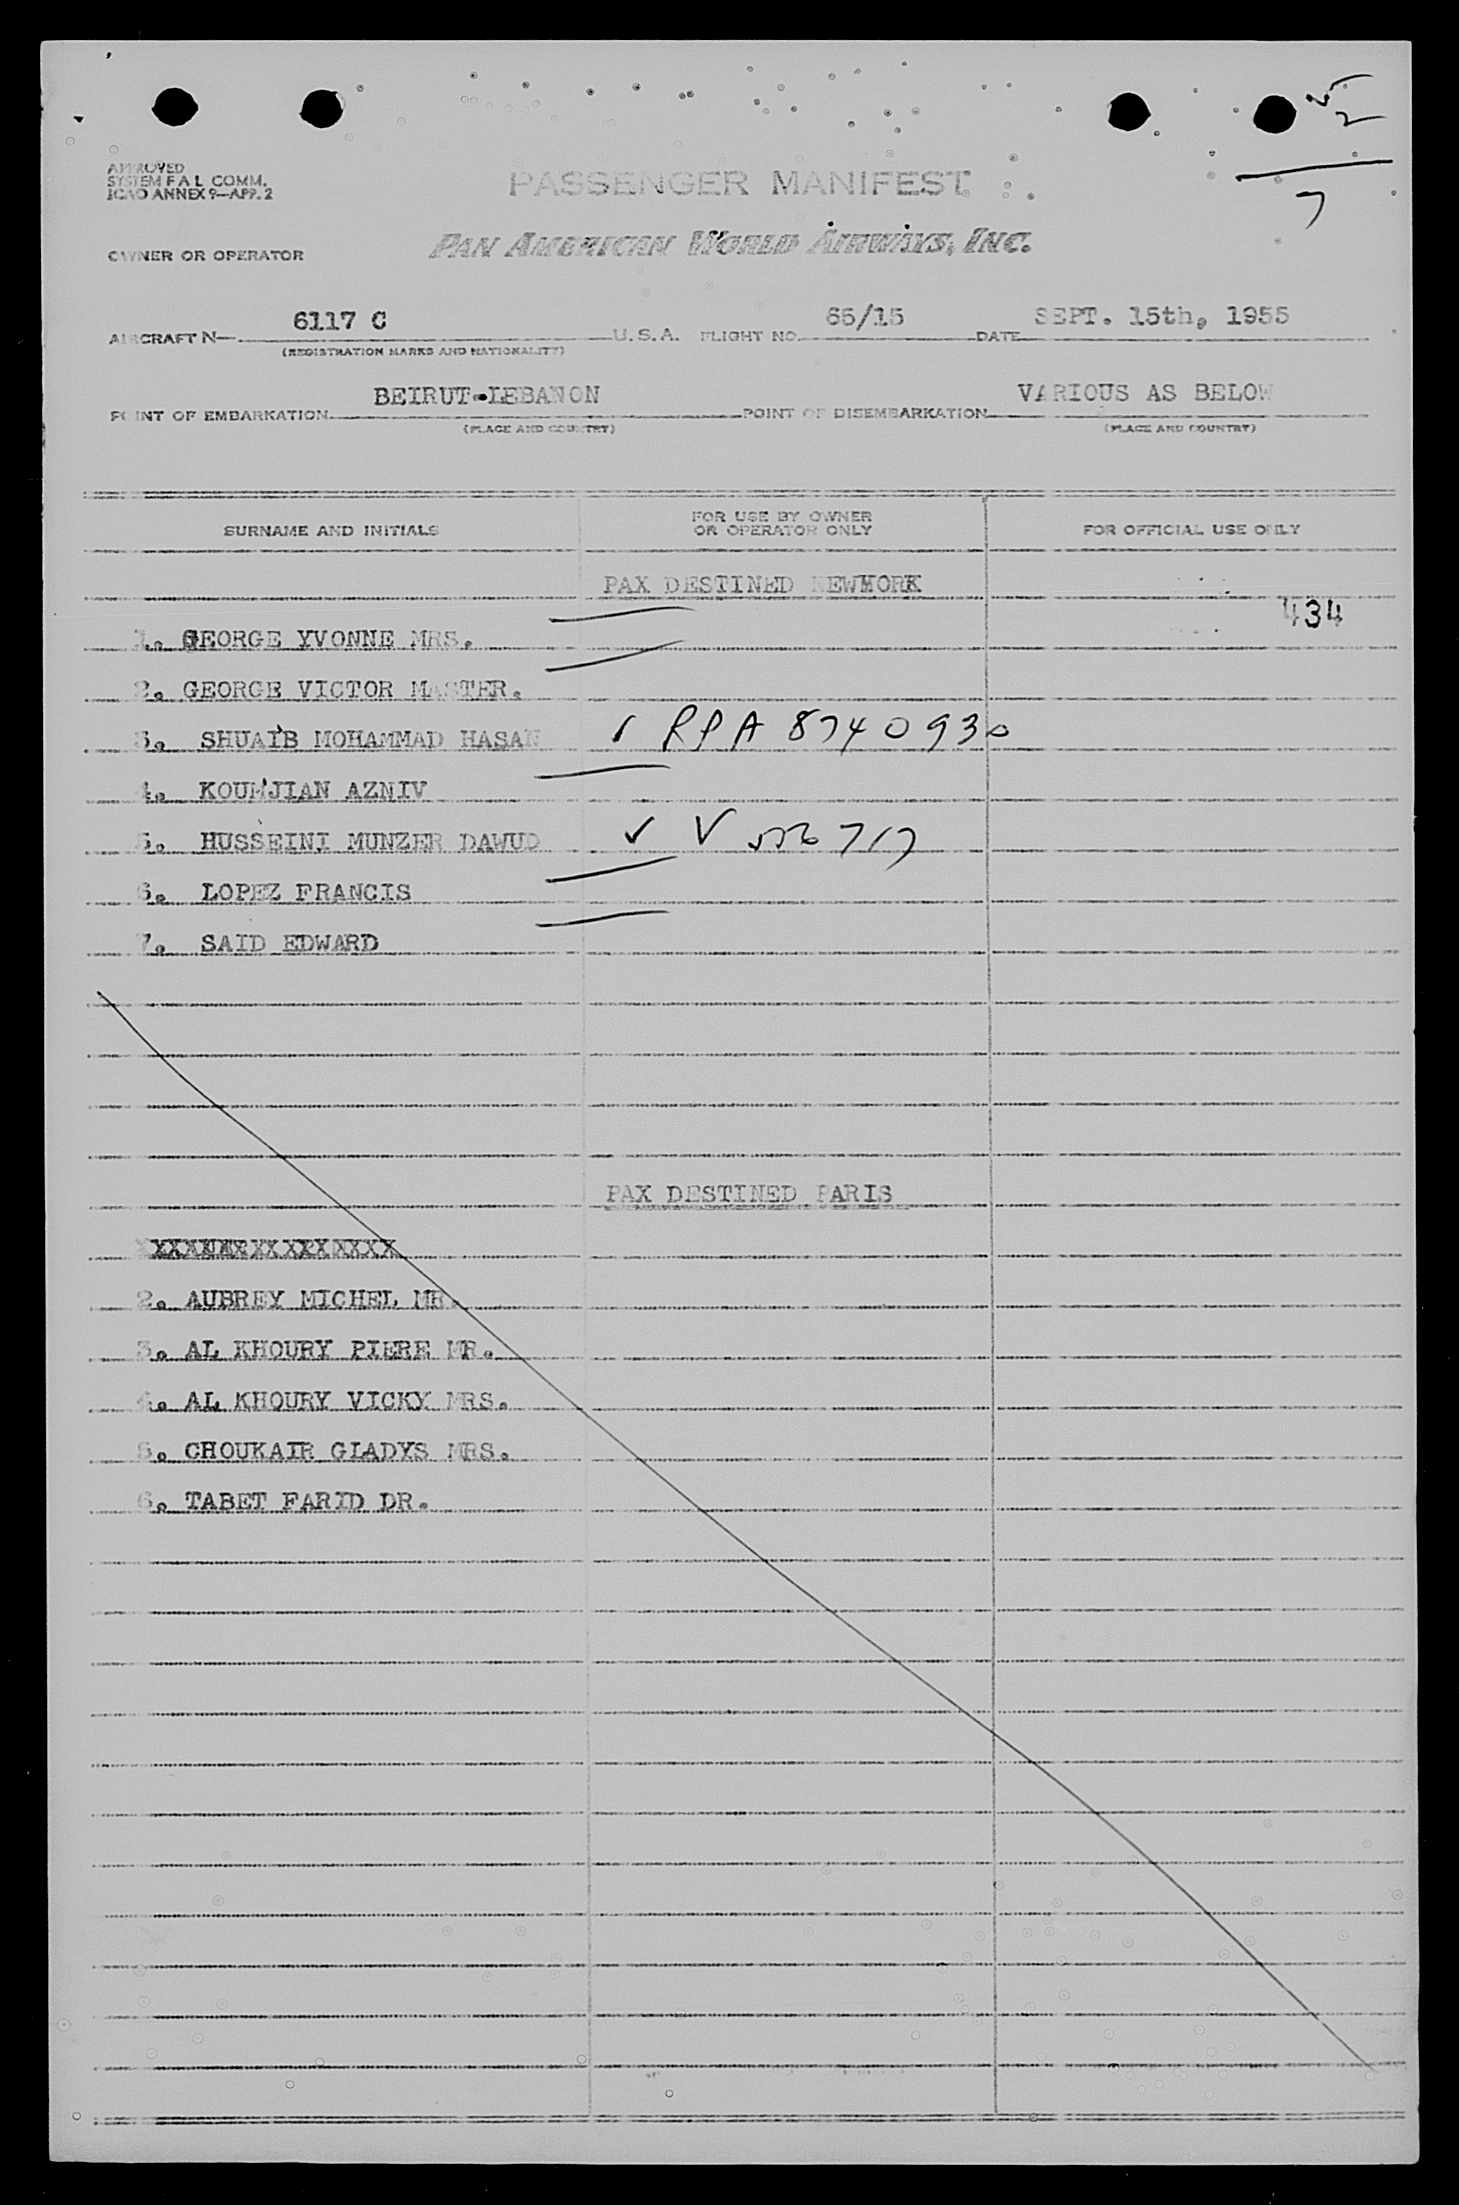 5
2
7
APPROVED
SYSTEM F A L COMM.
ICAO ANNEX 9—APP. 2
PASSENGER MANIFEST
OWNER OR OPERATOR PAN AMERICAN WORLD AIRWAYS, INC.
AIRCRAFT N— 6117 C U.S.A. FLIGHT NO. 66/15 DATE SEPT. 15th, 1955
(REGISTRATION MARKS AND NATIONALITY)
POINT OF EMBARKATION BEIRUT-LEBANON POINT OF DISEMBARKATION VARIOUS AS BELOW
(PLACE AND COUNTRY) (PLACE AND COUNTRY)
SURNAME AND INITIALS FOR USE BY OWNER OR OPERATOR ONLY FOR OFFICIAL USE ONLY
PAX DESTINED NEWYORK
434
1. GEORGE YVONNE MRS.
2. GEORGE VICTOR MASTER.
3. SHUAIB MOHAMMAD HASAN ✓ PPA 8740930
4. KOUMJIAN AZNIV
5. HUSSEINI MUNZER DAWUD ✓ V
6. LOPEZ FRANCIS
7. SAID EDWARD
PAX DESTINED PARIS
2. AUBREY MICHEL MR.
3. AL KHOURY PIERE MR.
4. AL KHOURY VICKY MRS.
5. CHOUKAIR GLADYS MRS.
6. TABET FARID DR.